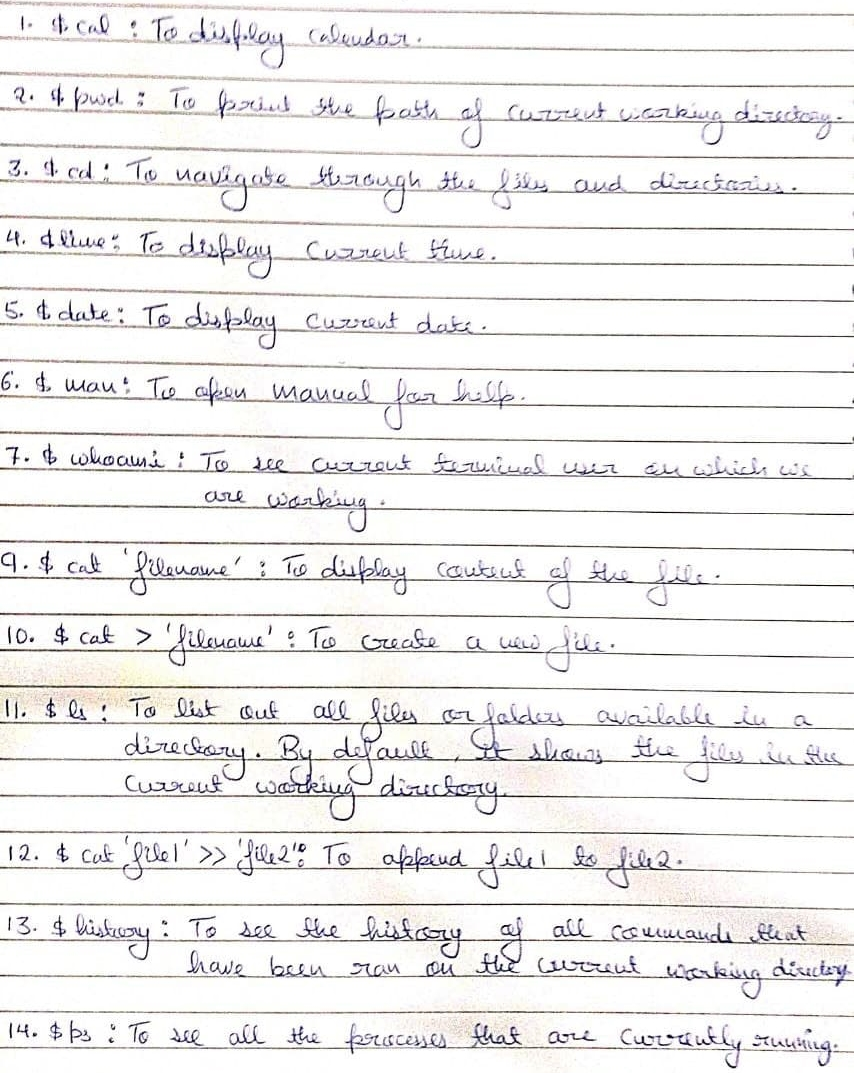 1. $ cal : To display calendar.
2. $ pwd : To print the path of current working directory.
3. $ cd : To navigate through the files and directories.
4. $ time : To display Current time.
5. $ date : To display Current date.
6. $ man : To open manual for help.
7. $ whoami : To see current terminal user on which we
are working.
9. $ cat 'filename' : To display content of the file.
10. $ cat > 'filename' : To create a new file.
11. $ ls : To list out all files or folders available in a
directory. By default, It shows the files in the
Current working directory.
12. $ cat 'file1' >> 'file2' : To append file1 to file2.
13. $ history : To see the history of all commands that
have been ran on the current working directory
14. $ ps : To see all the processes that are currently running.